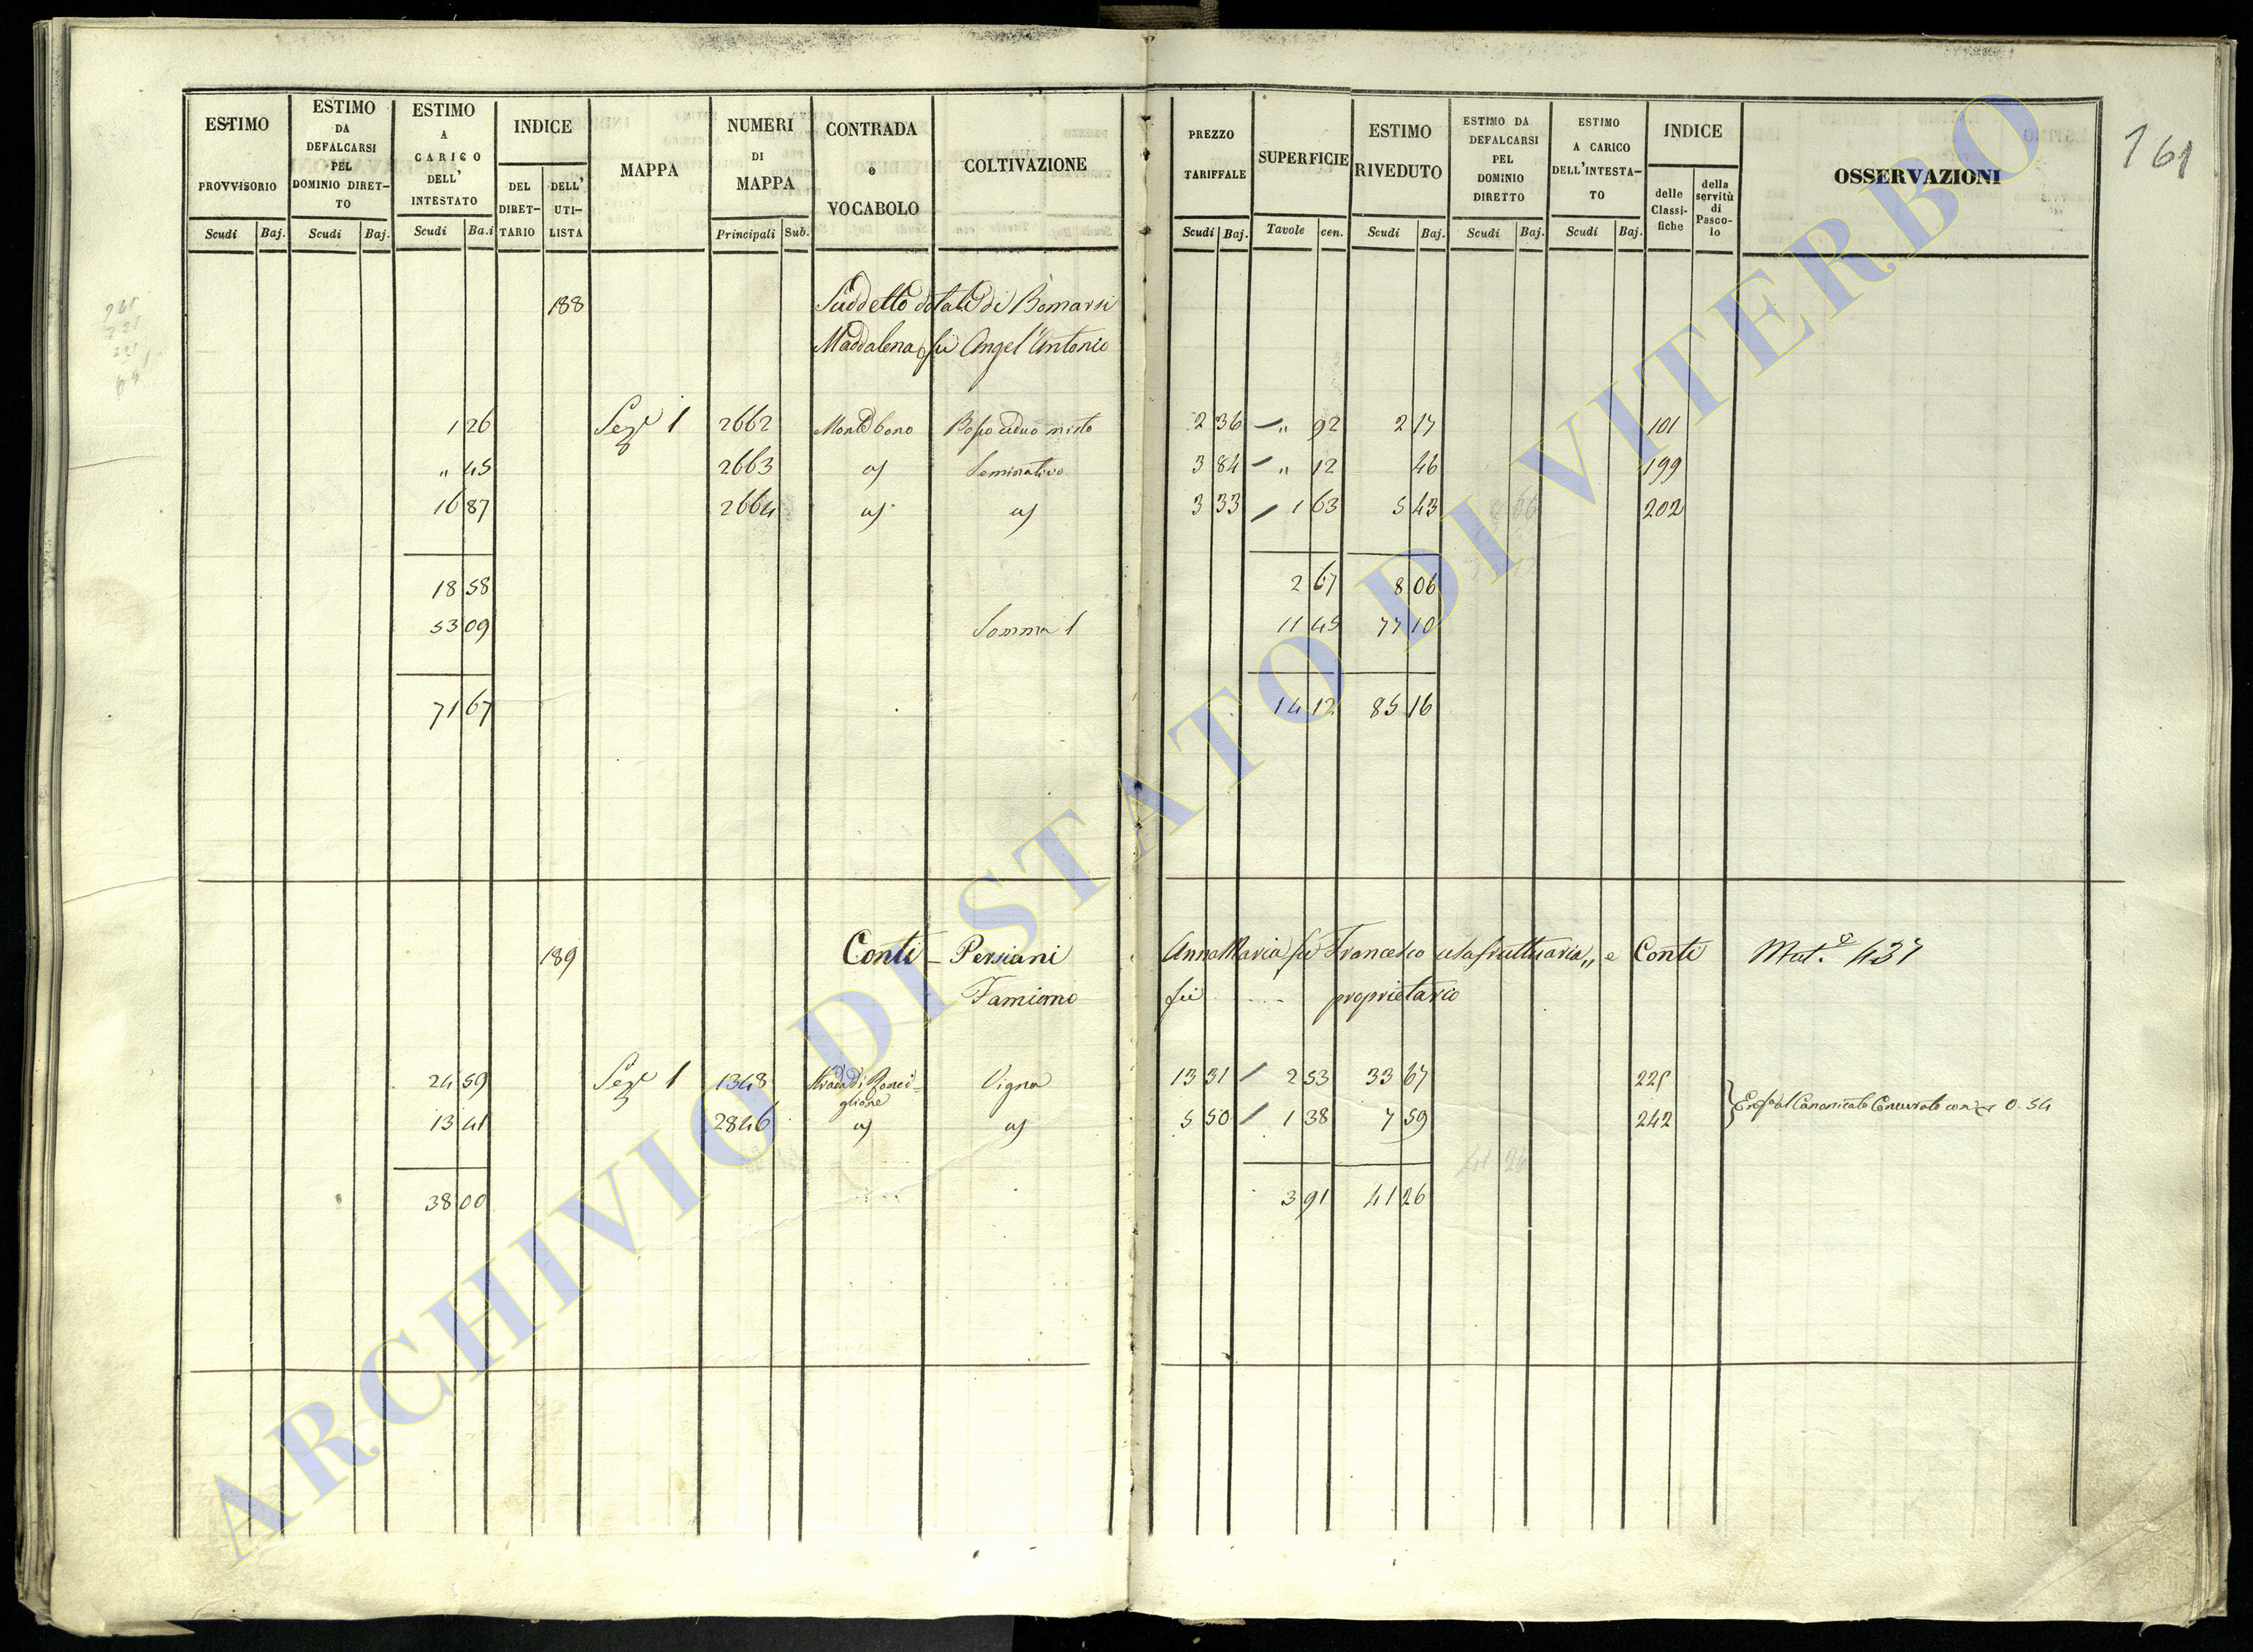 161
ESTIMO PROVVISORIO Scudi Baj.
ESTIMO DA DEFALCARSI PEL DOMINIO DIRET-TO Scudi Baj.
ESTIMO A CARICO DELL' INTESTATO Scudi Ba.i
INDICE DEL DIRET-TARIO DELL' UTI-LISTA
MAPPA
NUMERI DI MAPPA Principali Sub.
CONTRADA e VOCABOLO
COLTIVAZIONE
PREZZO TARIFFALE Scudi Baj.
SUPERFICIE Tavole cen.
ESTIMO RIVEDUTO Scudi Baj.
ESTIMO DA DEFALCARSI PEL DOMINIO DIRETTO Scudi Baj.
ESTIMO A CARICO DELL'INTESTA-TO Scudi Baj.
INDICE delle Classi-fiche della servitù di Pasco-lo
OSSERVAZIONI
188 Suddetto dotale di Bomarsi
Maddalena fu Angel'Antonio
1 26 Sez.e 1 2662 Monte bono Bosco ceduo misto 2 36 " 92 2 17 101
" 45 2663 a) Seminativo 3 84 " 12 46 199
16 87 2664 a) a) 3 33 1 63 5 43 202
18 58 2 67 8 06
53 09 Somma 1 11 45 77 10
71 67 14 12 85 16
189 Conti - Persiani Anna Maria fu Francesco usufruttuaria,, e Conti Mat.e 437
Famiano fu ..... proprietario
24 59 Sez.e 1 1348 Strada di Ronci-glione Vigna 13 31 2 53 33 67 225
13 41 2846 a) a) 5 50 1 38 7 59 242
Enf. al Canonicato Concurato con 0.54
38 00 3 91 41 26
ARCHIVIO DI STATO DI VITERBO